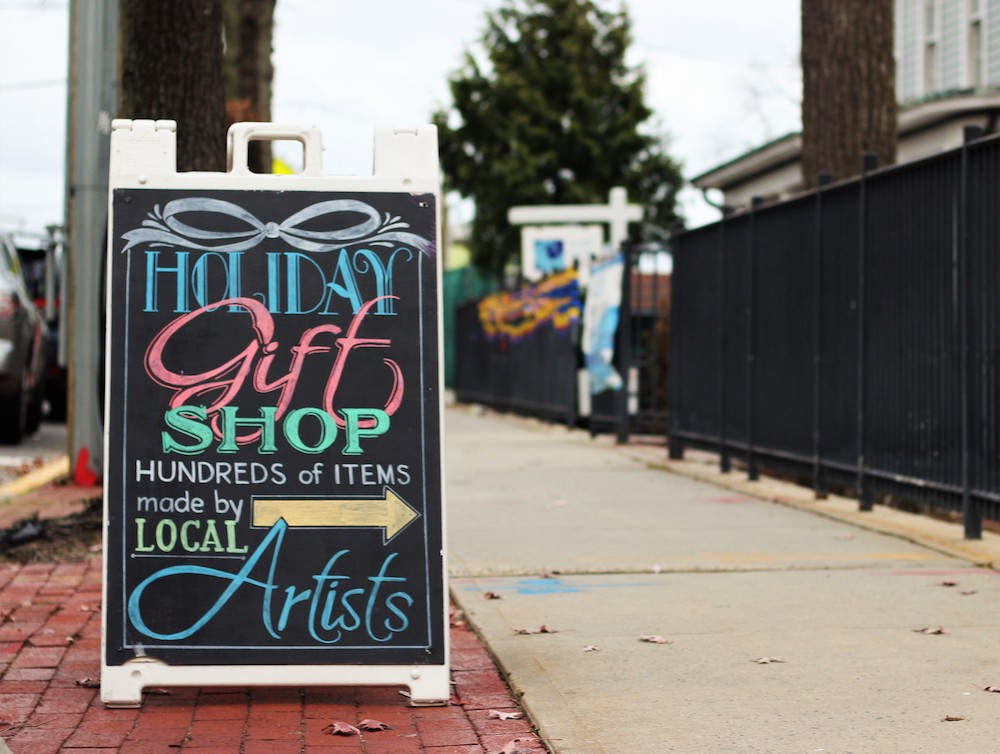 HOLIDAY
Gift
SHOP
HUNDREDS of ITEMS
made by
LOCAL
Artists